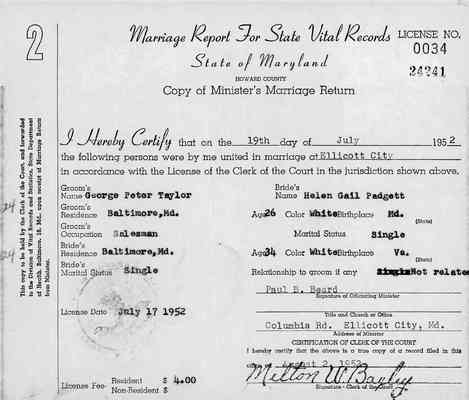 2
Marriage Report For State Vital Records
LICENSE NO.
0034
State of Maryland
24241
HOWARD COUNTY
Copy of Minister's Marriage Return
I Hereby Certify that on the 19th day of July 1952
the following persons were by me united in marriage at Ellicott City
in accordance with the License of the Clerk of the Court in the jurisdiction shown above.
Groom's Name George Peter Taylor
Bride's Name Helen Gail Padgett
Groom's Residence Baltimore, Md.
Age 26 Color White Birthplace Md.
(State)
Groom's Occupation Salesman
Marital Status Single
Bride's Residence Baltimore, Md.
Age 34 Color White Birthplace Va.
(State)
Bride's Marital Status Single
Relationship to groom if any Not relate
Paul B. Beard
Signature of Officiating Minister
License Date July 17 1952
Title and Church or Office
Columbia Rd. Ellicott City, Md.
Address of Minister
CERTIFICATION OF CLERK OF THE COURT
I hereby certify that the above is a true copy of a record filed in this
August 2, 1952
License Fee- Resident $ 4.00
Non-Resident $
Signature - Clerk of the Court
This copy to be held by the Clerk of the Court, and forwarded
to the Division of Vital Records and Statistics, State Department
of Health, Baltimore, 18, Md., upon receipt of Marriage Return
from Minister.